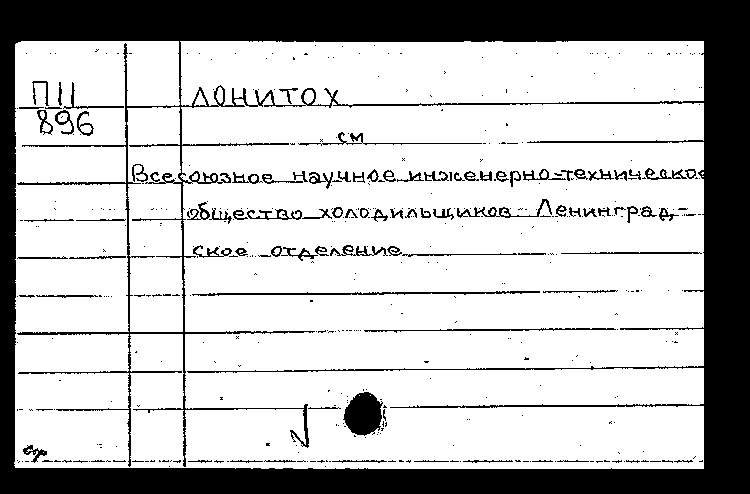 П11
896
ЛОНИТОХ
см
Всесоюзное научное инженерно-техническое
общество холодильщиков - Ленинград-
ское отделение